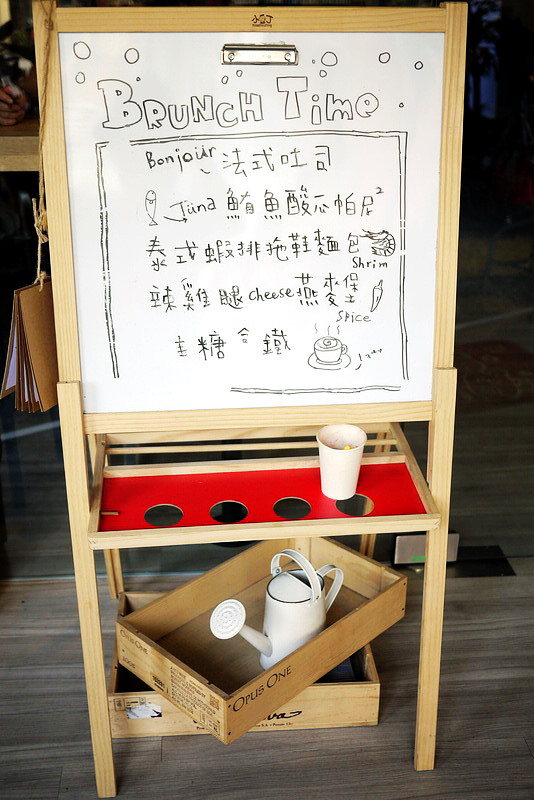 BRUNCH Time
Bonjour 法式吐司
Tuna 鮪魚酸瓜帕尼²
泰式蝦排拖鞋麵包
Shrim
辣雞腿cheese燕麥堡
Spice
OPUS ONE
OPUS ONE